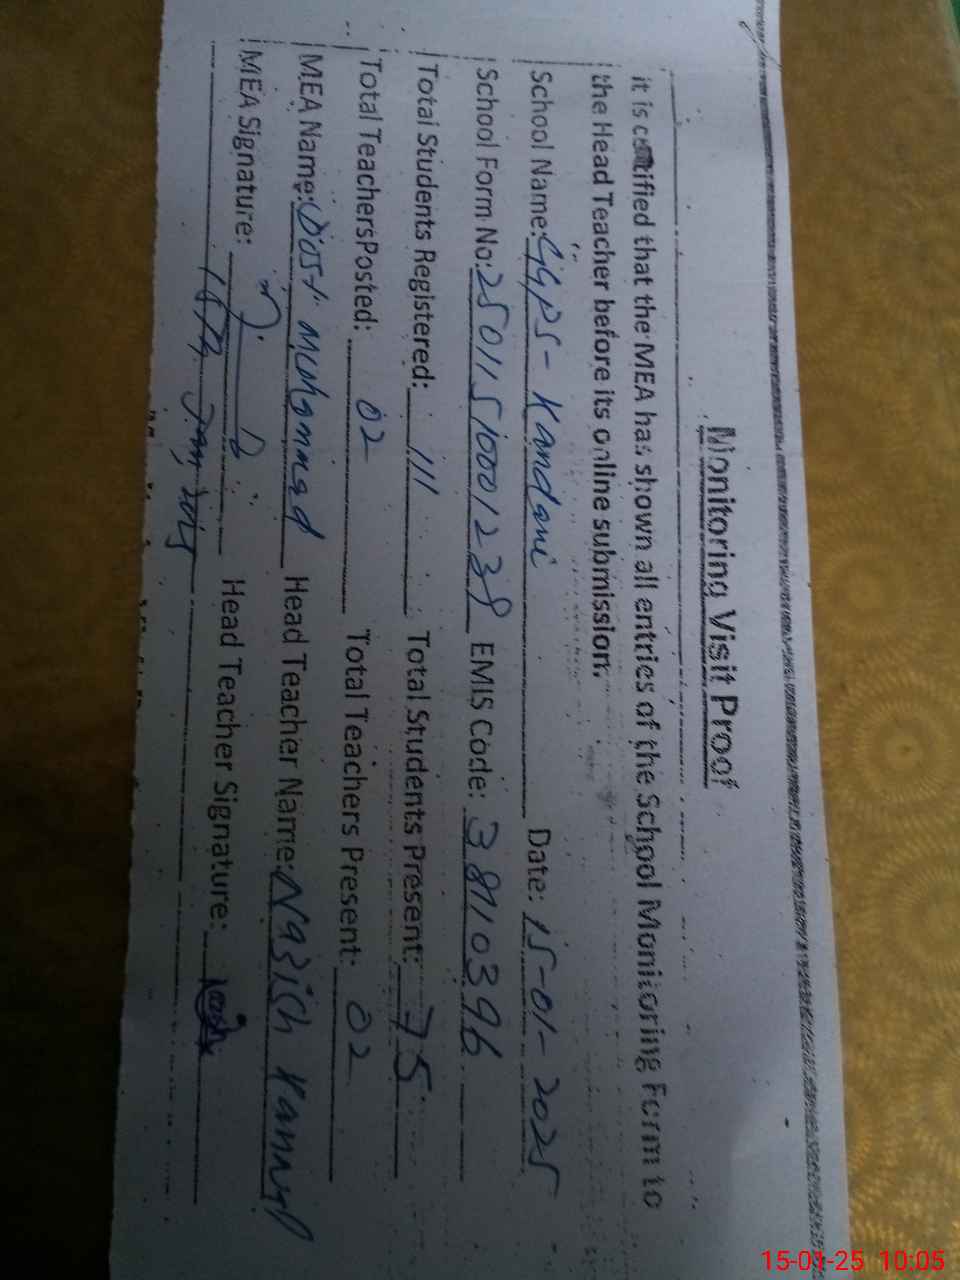 Monitoring Visit Proof
it is certified that the MEA has shown all entries of the School Monitoring Form to
the Head Teacher before its online submission.
School Name: GGPS - Kandani Date: 15-01-2025
School Form No: 25011510001239 EMIS Code: 38810396
Total Students Registered: 111 Total Students Present: 75
Total TeachersPosted: 02 Total Teachers Present: 02
MEA Name: Dost Muhammad Head Teacher Name: Nazish Kanwal
MEA Signature: Head Teacher Signature:
15th Jan, 2025
15-01-25 10:05